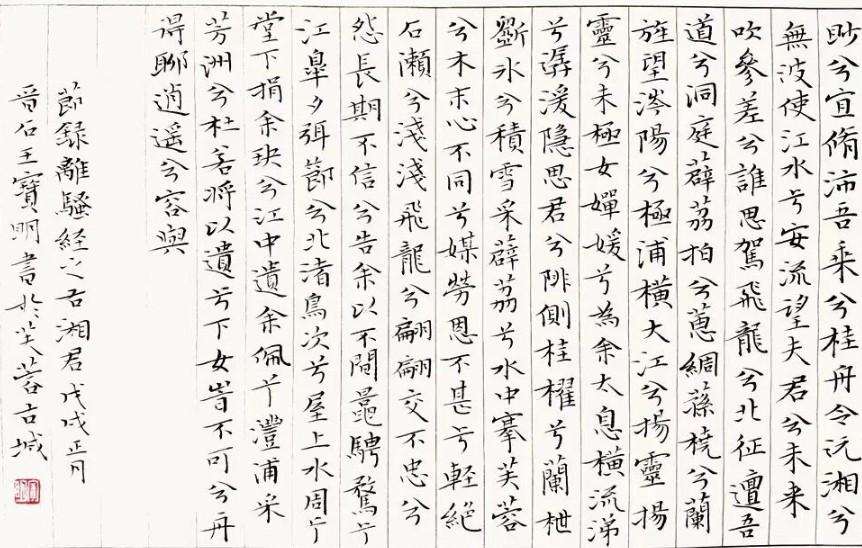 眇兮宜脩沛吾乘兮桂舟令沅湘兮
無波使江水兮安流望夫君兮未来
吹參差兮誰思駕飛龍兮北征邅吾
道兮洞庭薜荔拍兮蕙綢蓀橈兮蘭
旌望涔陽兮極浦橫大江兮揚靈揚
靈兮未極女嬋媛兮為余太息橫流涕
兮潺湲隐思君兮陫側桂櫂兮蘭枻
斵氷兮積雪采薜荔兮水中搴芙蓉
兮木末心不同兮媒勞恩不甚兮軽絕
石瀨兮淺淺飛龍兮翩翩交不忠兮
怨長期不信兮告余以不閒鼂騁騖兮
江臯夕弭節兮北渚鳥次兮屋上水周兮
堂下捐余玦兮江中遺余佩兮澧浦采
芳洲兮杜若將以遺兮下女旹不可兮再
得聊逍遥兮容與
節録離騷经之古湘君戊戌正月
晋石王寶明書於芙蓉古城